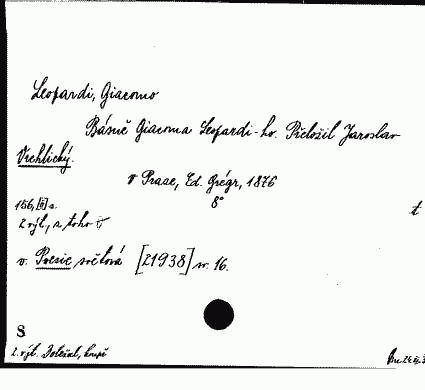 Leopardi, Giacomo
Básně Giacoma Leopardi-ho. Přeložil Jaroslav
Vrchlický.
V Praze, Ed. Grégr, 1876
156, [II] s. 8°
t
2 výt., z toho
v. Poesie světová [21938] sv. 16.
S
2. výt. Doležal, koupě